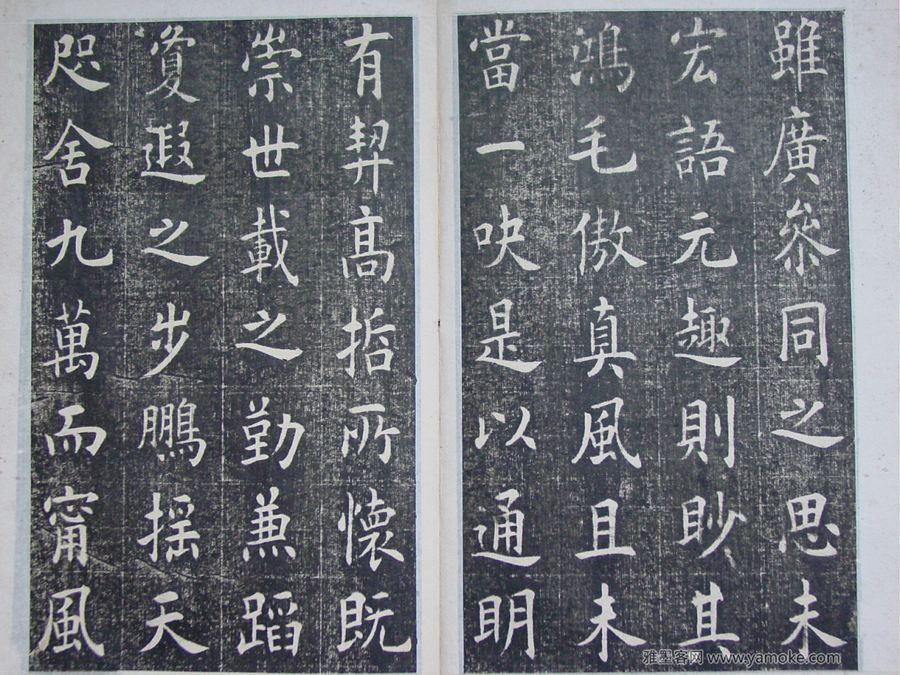 雖廣叅同之思未
宏語元趣則眇其
鴻毛傲真風且未
當一吷是以通明
有契髙哲所懷既
崇世載之勤兼蹈
敻遐之步鵬摇天
咫舍九萬而甯風
雅墨客网 www.yamoke.com